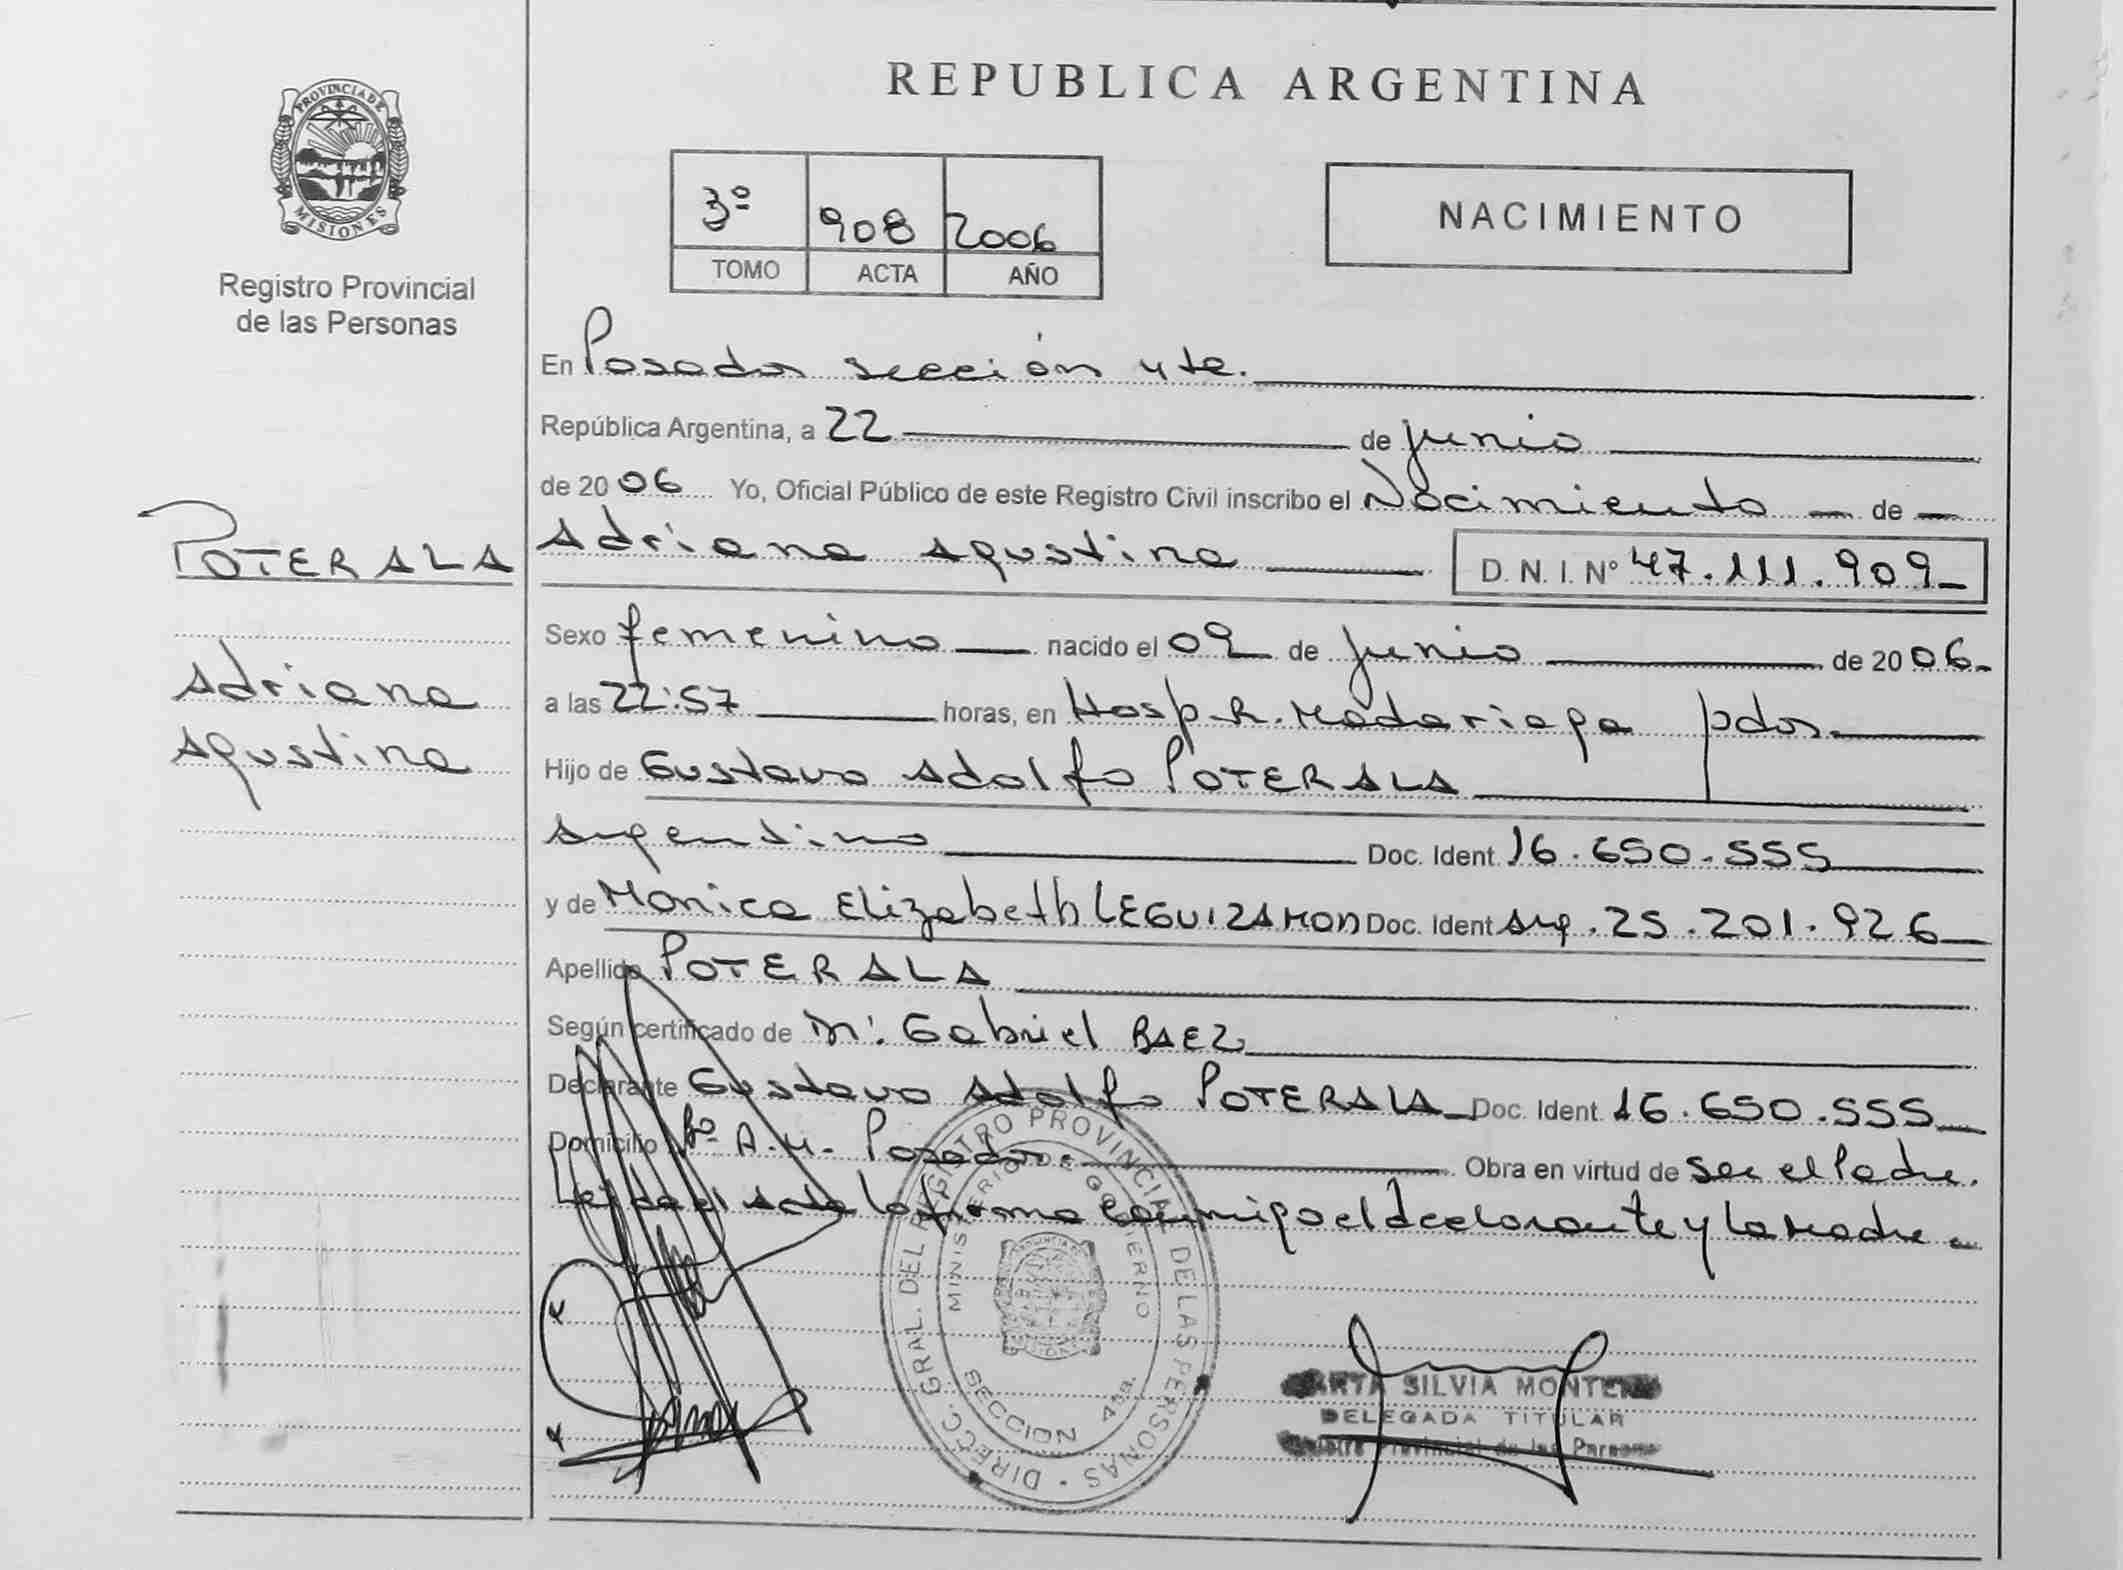 REPUBLICA ARGENTINA
PROVINCIA DE
MISIONES
Registro Provincial
de las Personas
3º 908 2006
TOMO ACTA AÑO
NACIMIENTO
En Posadas sección 4ta.
República Argentina, a 22 de junio
de 2006 Yo, Oficial Público de este Registro Civil inscribo el Nacimiento de
POTERALA
Adriana Agustina D.N.I. Nº 47.111.909
Sexo femenino nacido el 09 de junio de 2006
Adriana
a las 22:57 horas, en Hosp. R. Madariaga pdas.
Agustina
Hijo de Gustavo Adolfo POTERALA
Argentino Doc. Ident. 16.650.555
y de Monica Elizabeth LEGUIZAMON Doc. Ident. Arg. 25.201.926
Apellido POTERALA
Según certificado de M: Gabriel BAEZ
Declarante Gustavo Adolfo POTERALA Doc. Ident. 16.650.555
Domicilio Bº A.H. Posadas. Obra en virtud de ser el Padre.
Leída el acta la firma conmigo el declarante y la madre
DIRECC. GRAL. DEL REGISTRO PROVINCIAL DE LAS PERSONAS
MINISTERIO DE GOBIERNO
SECCION 4ta.
SILVIA MONTE
DELEGADA TITULAR
Provincial de las Personas